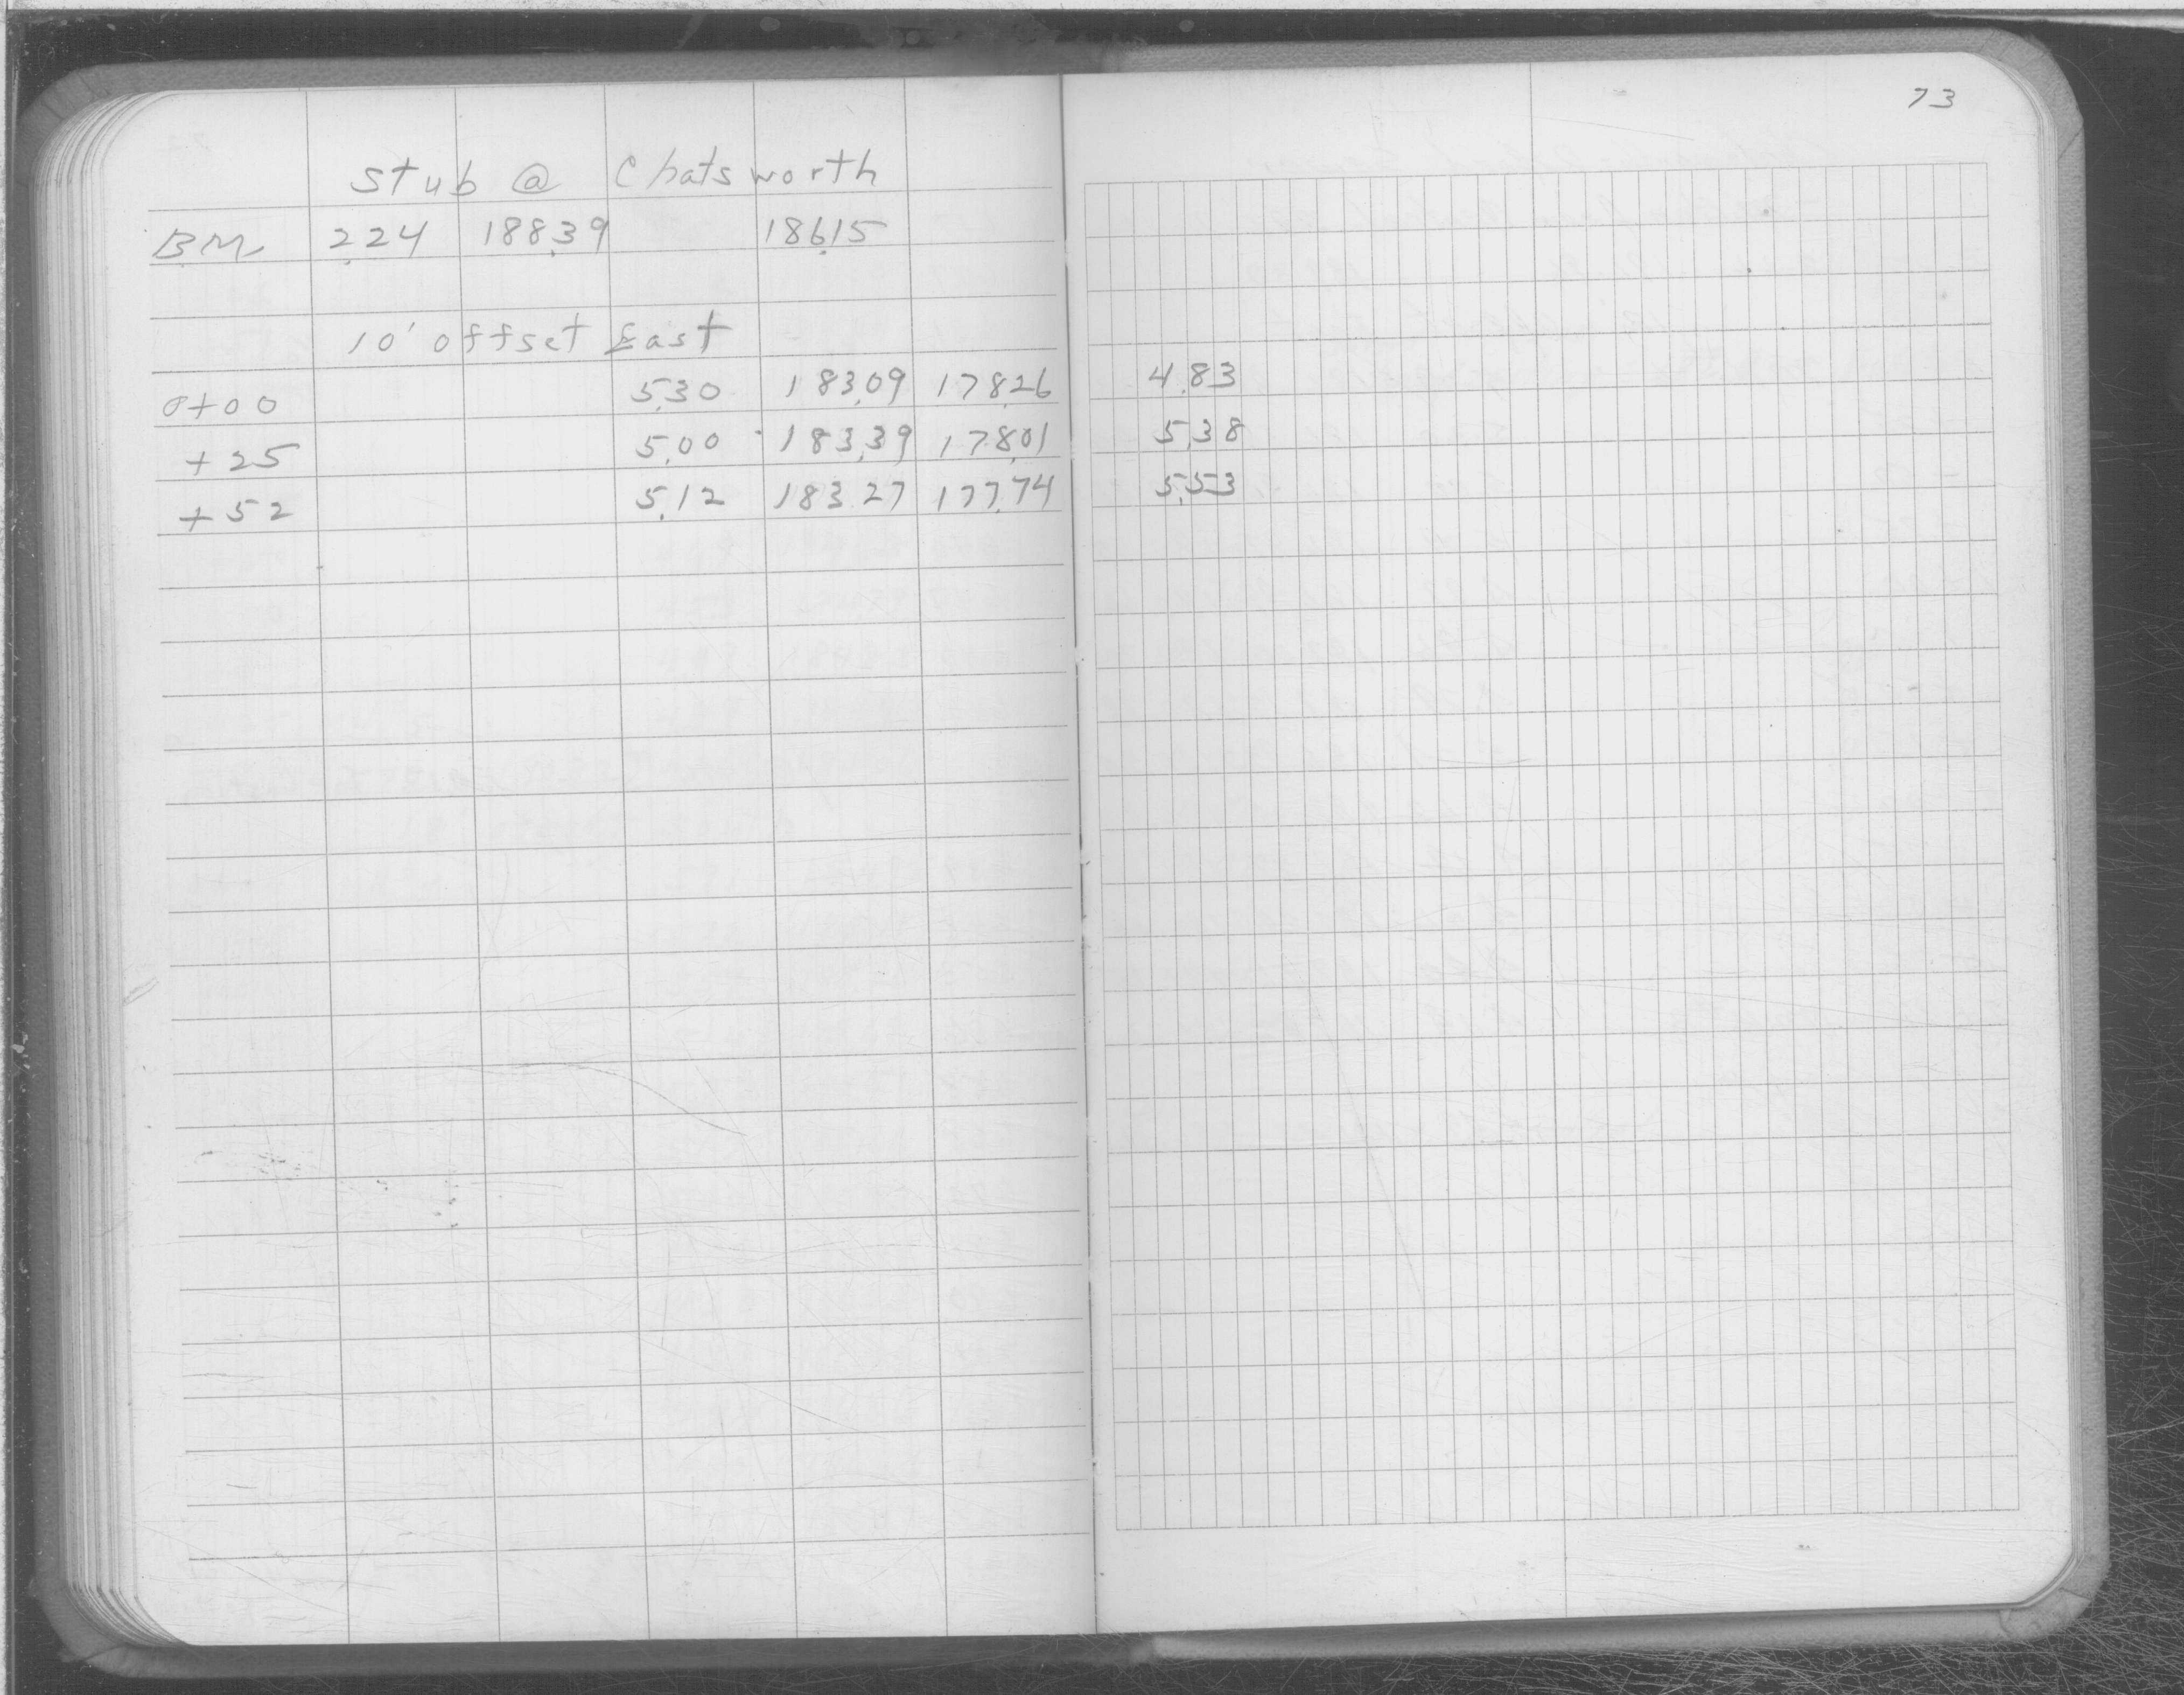 73
Stub @ Chatsworth
BM 2.24 188.39 186.15
10' offset East
0+00 5.30 183.09 178.26 4.83
+25 5.00 183.39 178.01 5.38
+52 5.12 183.27 177.74 5.53